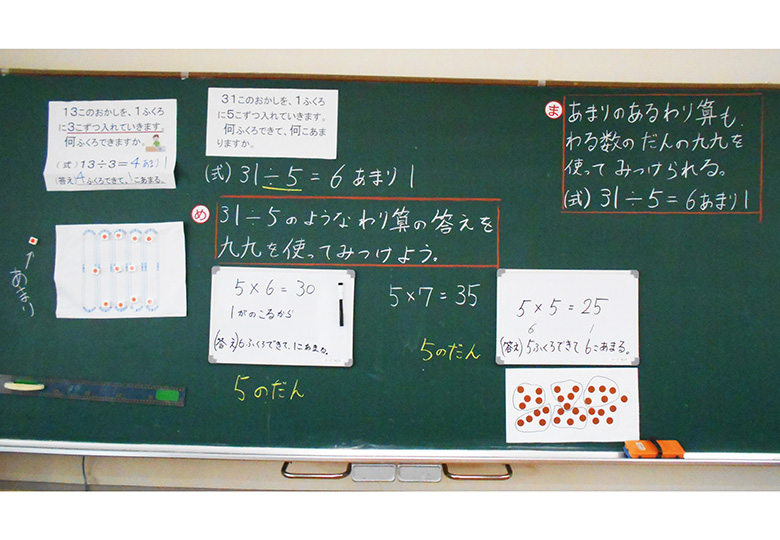 13このおかしを、1ふくろ
に3こずつ入れていきます。
何ふくろできますか。
(式) 13÷3=4あまり1
(答え)4ふくろできて、1こあまる。
あまり
31このおかしを、1ふくろ
に5こずつ入れていきます。
何ふくろできて、何こあま
りますか。
(式) 31÷5=6 あまり1
め
31÷5のようなわり算の答えを
九九を使ってみつけよう。
5×6=30
1がのこるから
(答え)6ふくろできて、1こあまる。
5のだん
5×7=35
5のだん
5×5=25
6 1
(答え)5ふくろできて 6こあまる。
ま
あまりのあるわり算も、
わる数のだんの九九を
使ってみつけられる。
(式) 31÷5=6あまり1